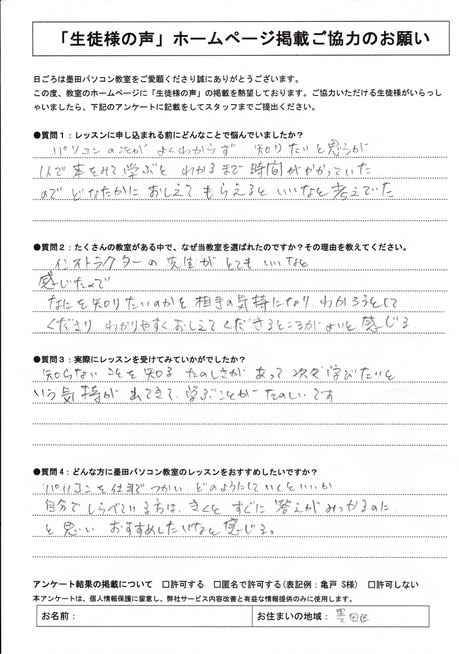 「生徒様の声」ホームページ掲載ご協力のお願い
日ごろは墨田パソコン教室をご愛顧くださり誠にありがとうございます。
この度、教室のホームページに「生徒様の声」の掲載を熱望しております。ご協力いただける生徒様がいらっし
ゃいましたら、下記のアンケートに記載をしてスタッフまでご提出ください。
●質問1：レッスンに申し込まれる前にどんなことで悩んでいましたか？
パソコンのことが よくわからず 知りたいと思うが
1人で本をみて学ぶと わかるまで 時間がかかっていた
ので どなたかに おしえて もらえると いいなと 考えてた
●質問2：たくさんの教室がある中で、なぜ当教室を選ばれたのですか？その理由を教えてください。
インストラクターの先生が とても いいなと
感じたので
なにを知りたいのかを 相手の気持になり わかろうとして
くださり わかりやすく おしえて くださるところが よいと 感じる
●質問3：実際にレッスンを受けてみていかがでしたか？
知らない ことを 知る たのしさが あって 次々 学びたいと
いう 気持が 出てきて 学ぶことが たのしいです
●質問4：どんな方に墨田パソコン教室のレッスンをおすすめしたいですか？
パソコンを仕事で つかい どのようにしていくといいか
自分で しらべている方は きくと すぐに 答えが みつかるのに
と思い おすすめしたいなと 感じる。
アンケート結果の掲載について □許可する □匿名で許可する(表記例：亀戸 S様) □許可しない
本アンケートは、個人情報保護に留意し、弊社サービス内容改善と有益な情報提供のみに使用します。
お名前： お住まいの地域： 墨田区